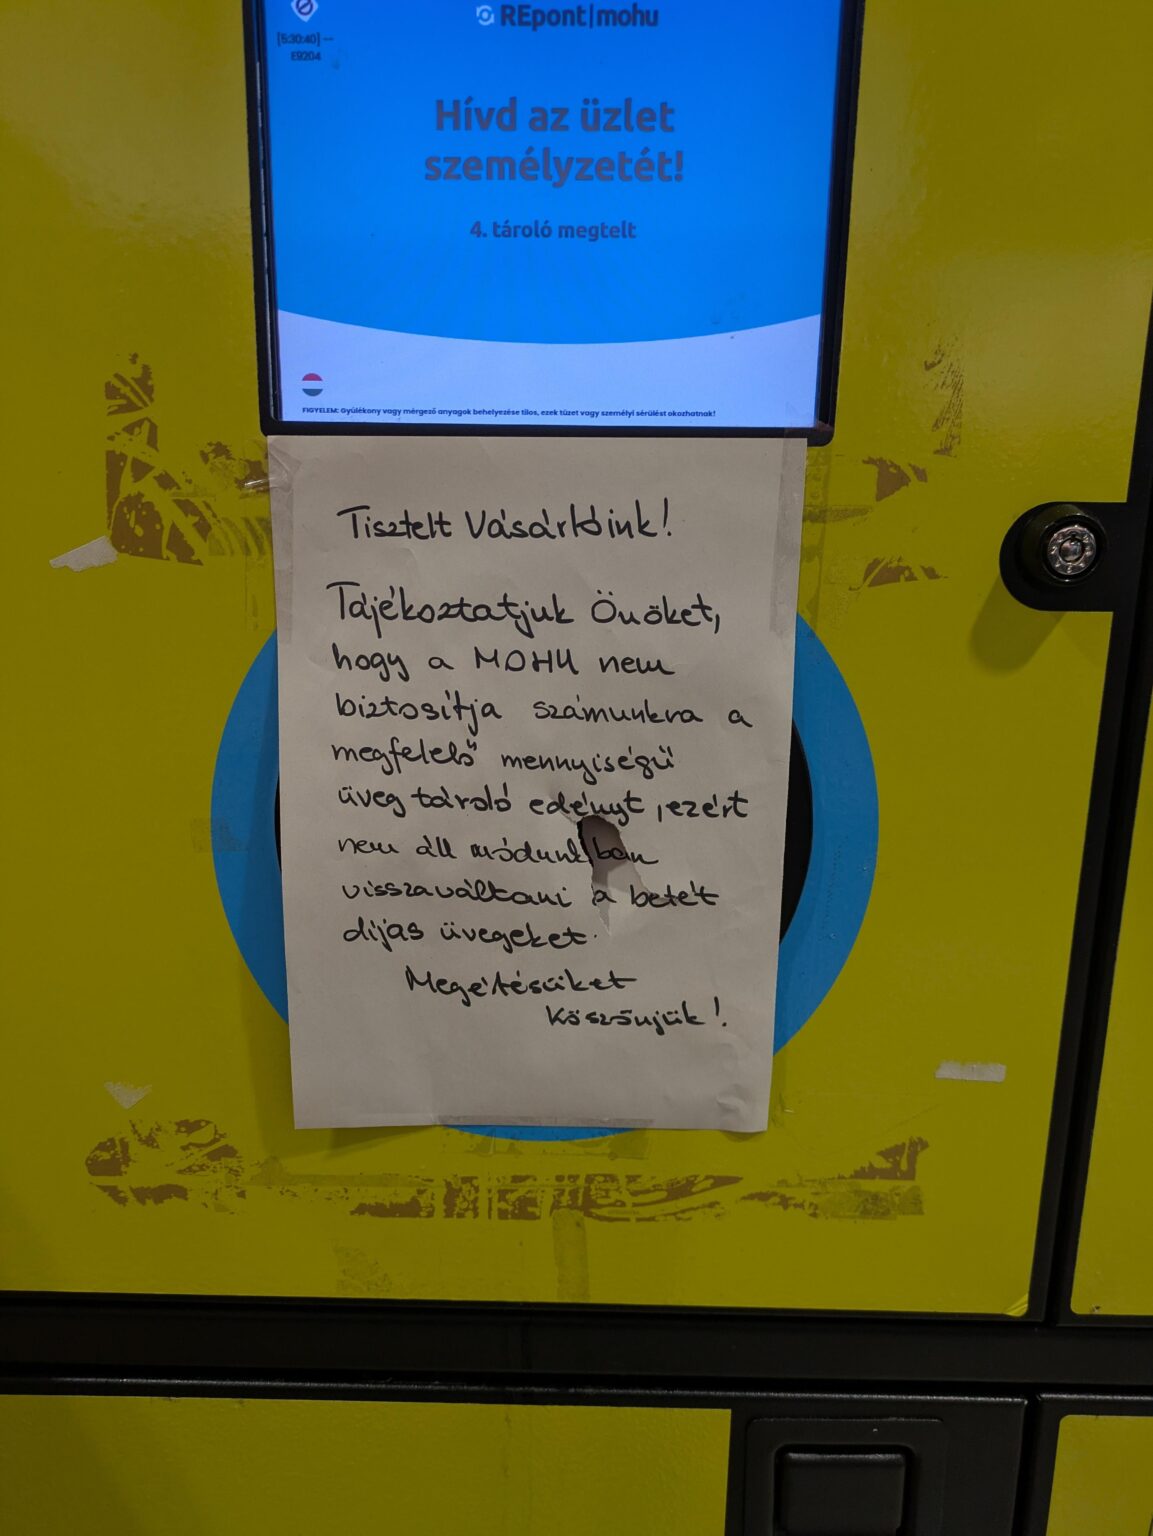 REpont|mohu
[5:30:40] --
E9204
Hívd az üzlet
személyzetét!
4. tároló megtelt
FIGYELEM: Gyúlékony vagy mérgező anyagok behelyezése tilos, ezek tüzet vagy személyi sérülést okozhatnak!
Tisztelt Vásárlóink!
Tájékoztatjuk Önöket,
hogy a MOHU nem
biztosítja számunkra a
megfelelő mennyiségű
üveg tároló edényt, ezért
nem áll módunkban
visszaváltani a betét
díjas üvegeket.
Megértésüket
Köszönjük!